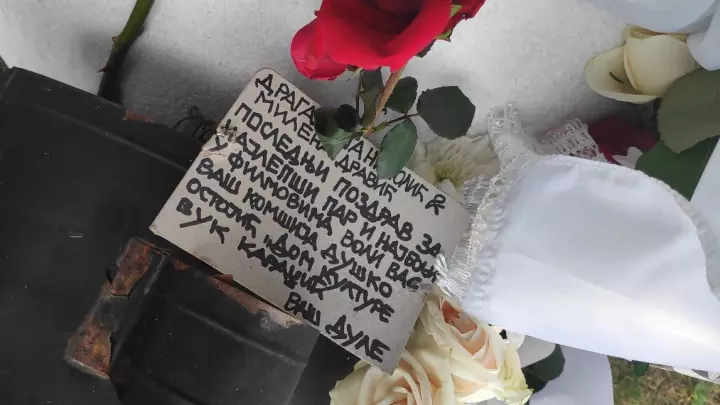 ДРАГАН НИКОЛИЋ &
МИЛЕНА ДРАВИЋ
ПОСЛЕДЊИ ПОЗДРАВ ЗА
НАЈЛЕПШИ ПАР И
У ФИЛМОВИМА ВОЛИ ВАС
ВАШ КОМШИЈА ДУШКО
ОСТОЈИЋ, „ДОМ КУКТУРЕ
ВУК КАРАЏИЋ
ВАШ ДУЛЕ